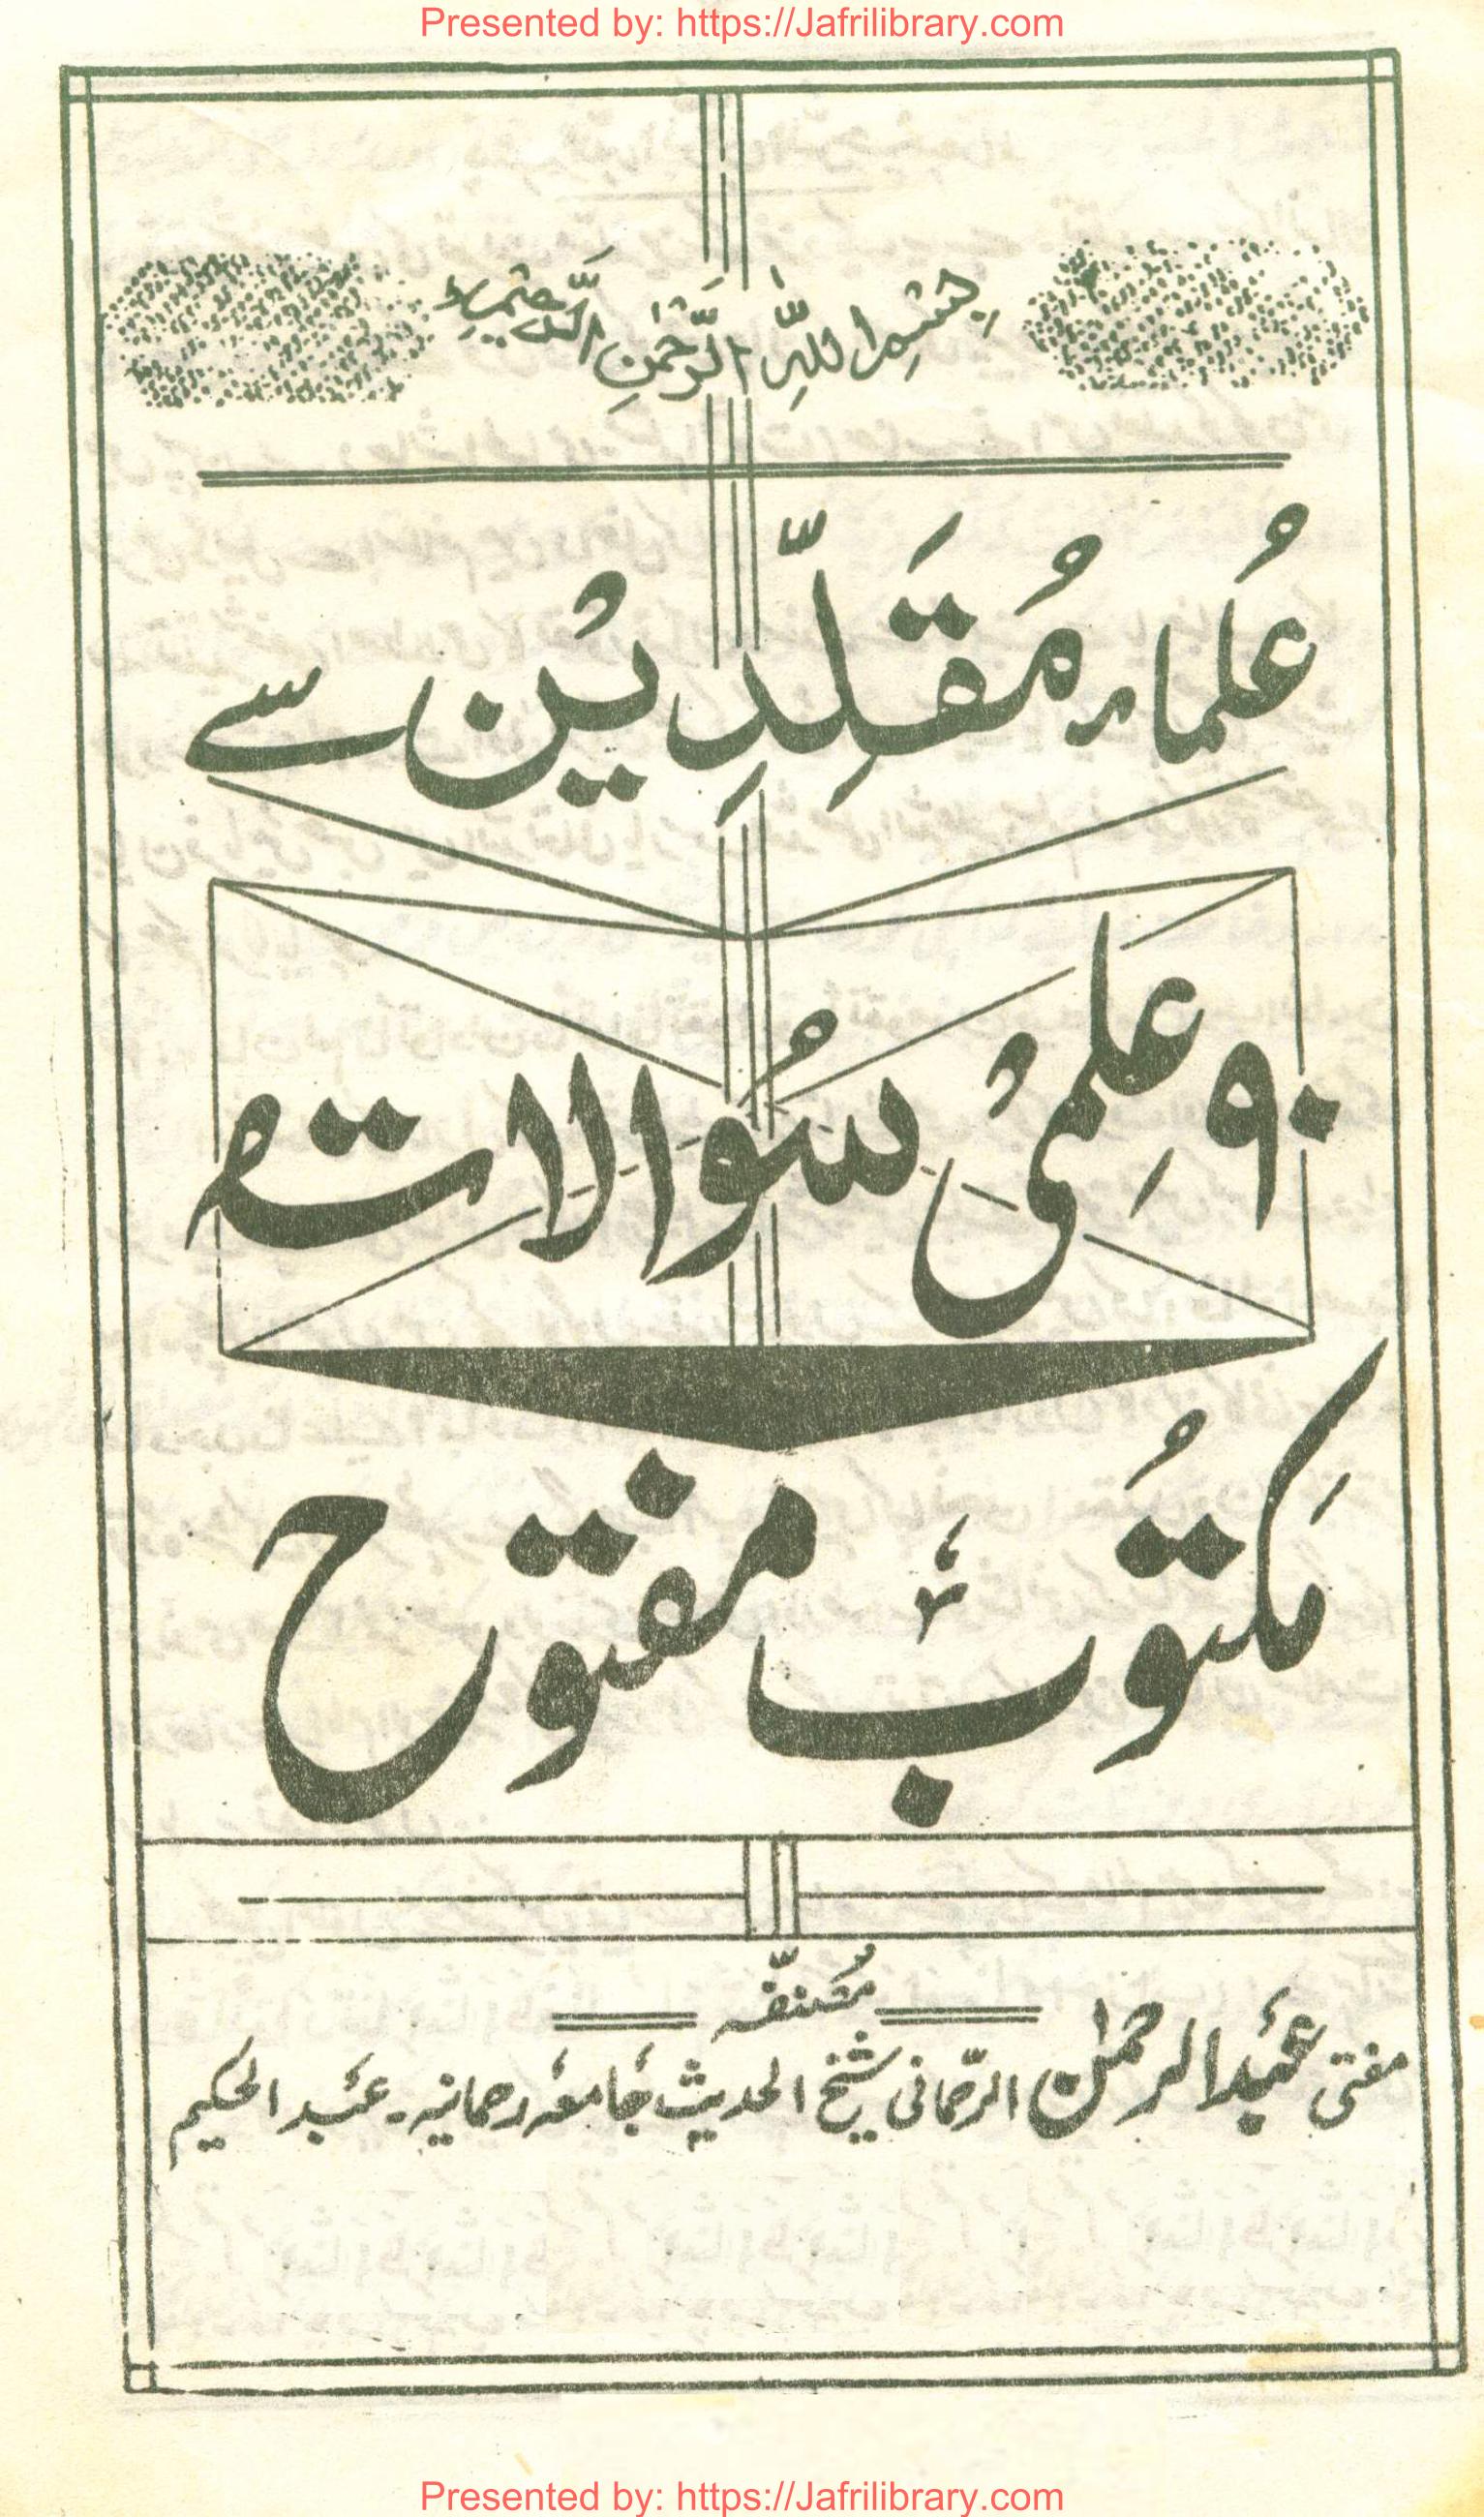 Presented by: https://Jafrilibrary.com
بِسْمِ اللّٰهِ الرَّحْمٰنِ الرَّحِیْمِ
عُلماء مُقَلِّدِیْن سے
۹۰ عِلمیْ سُوالات
مَکتُوبِ مفتوح
مُصنفّہ
مفتی عَبدالرحمٰن الرّحمانی شیخ الحدیث جَامعہ رحمانیہ۔ عَبد الحکیم
Presented by: https://Jafrilibrary.com